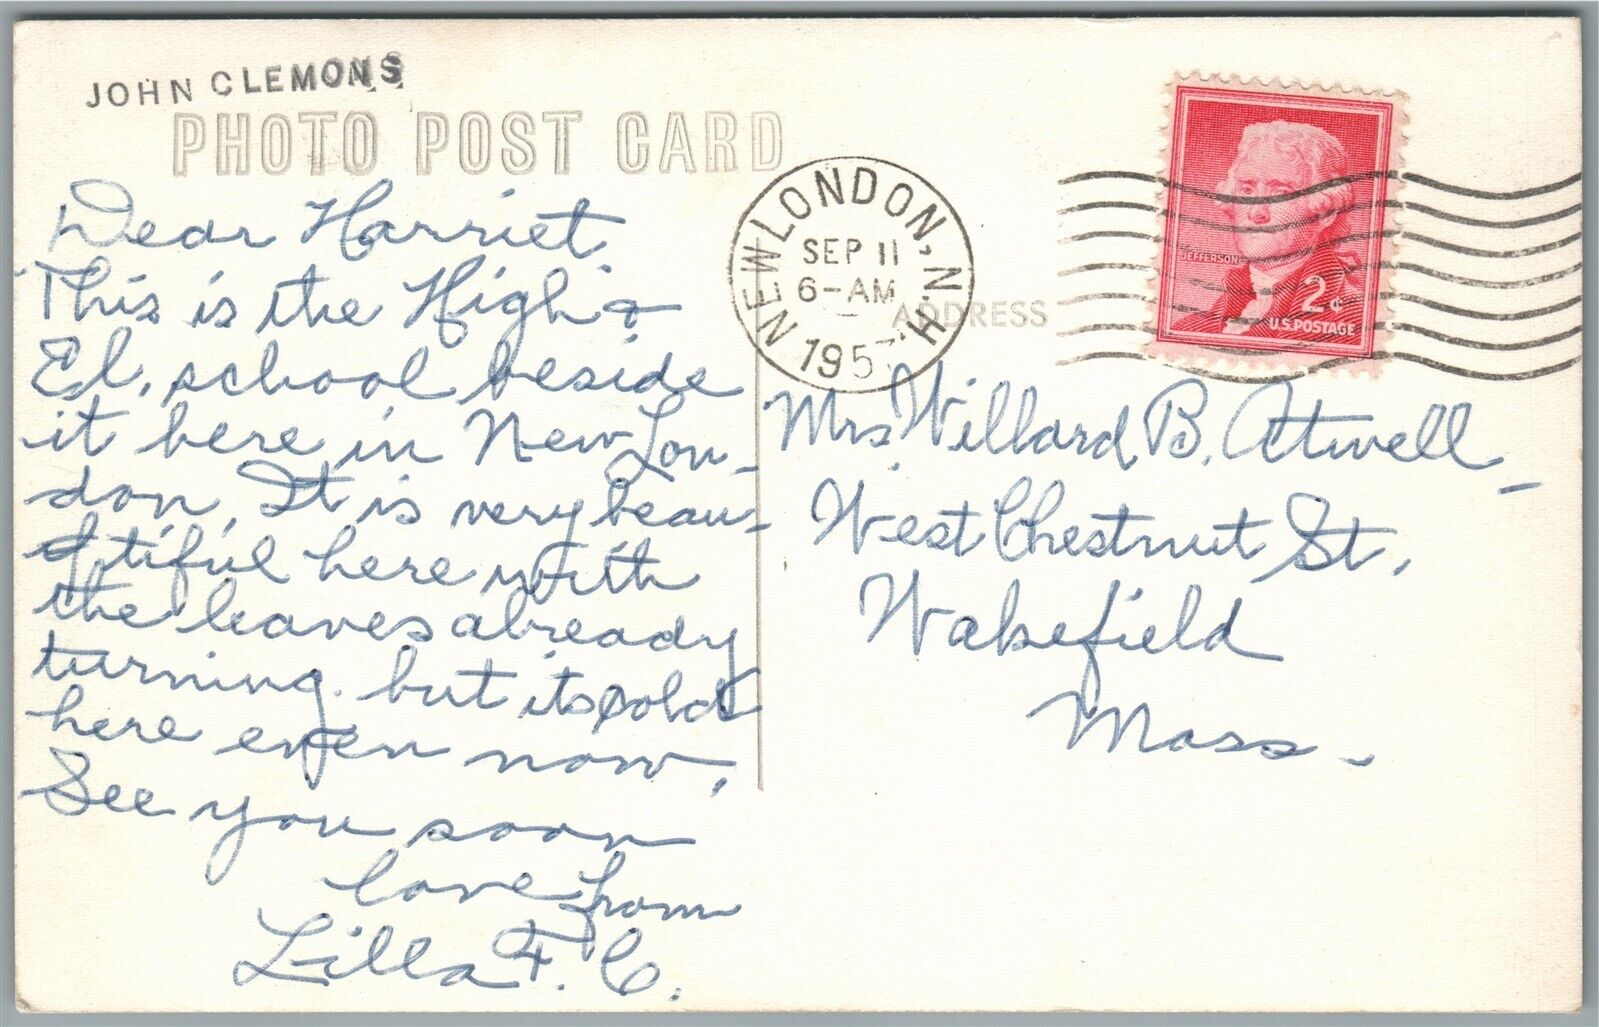 JOHN CLEMONS
PHOTO POST CARD
Dear Harriet,
This is the High &
El. school beside
it here in New Lon-
don. It is very beau-
tiful here with
the leaves already
turning. but its cold
here even now.
See you soon
love from
Lilla F. C.
NEW LONDON, N.H.
SEP 11
6-AM
195
ADDRESS
JEFFERSON
2¢
U.S. POSTAGE
Mrs Willard B. Atwell -
West Chestnut St,
Wakefield
Mass -